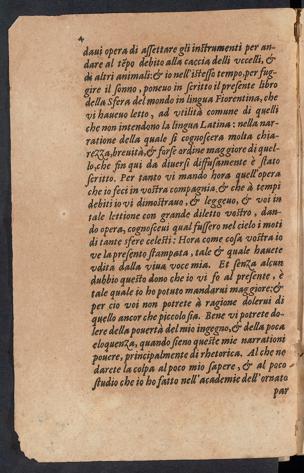 4
daui opera di assettare gli instrumenti per an-
dare al tẽpo debito alla caccia delli vccelli, &
di altri animali: & io nell'istesso tempo, per fug-
gire il sonno, poneuo in scritto il presente libro
della Sfera del mondo in lingua Fiorentina, che
vi haueuo letto, ad vtilità comune di quelli
che non intendono la lingua Latina: nella nar-
ratione della quale si cognoscera molta chia-
rezza, breuità, & forse ordine maggiore di quel-
lo, che fin qui da diuersi diffusamente è stato
scritto. Per tanto vi mando hora quell'opera
che io feci in vostra compagnia, & che à tempi
debiti io vi dimostrauo, & leggeuo, & voi in
tale lettione con grande diletto vostro, dan-
do opera, cognosceui qual fussero nel cielo i moti
di tante sfere celesti: Hora come cosa vostra io
ve la presento stampata, tale & quale hauete
vdita dalla viua voce mia. Et senza alcun
dubbio questo dono che io vi fo al presente, è
tale quale io ho potuto mandarui maggiore: &
per cio voi non potrete à ragione dolerui di
quello ancor che piccolo sia. Bene vi potrete do-
lere della pouertà del mio ingegno, & della poca
eloquenza, quando sieno queste mie narrationi
pouere, principalmente di rhetorica. Al che no
darete la colpa al poco mio sapere, & al poco
studio che io ho fatto nell'academie dell'ornato
par